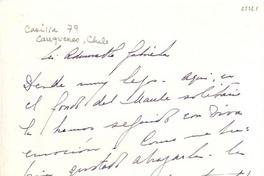 Casilla 79
Cauquenes, Chile
Mi Admirada Gabriela
Desde muy lejos. Aquí, en
el fondo del Maule solitario
la hemos seguido con viva
emoción. Como me hu-
gustado abrazarla. La